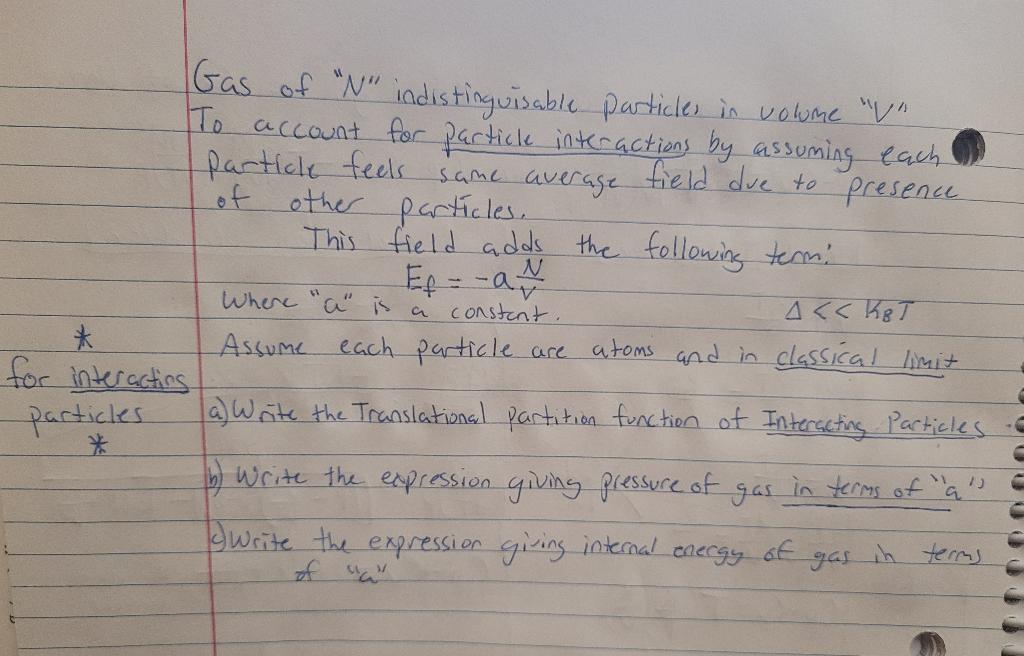 Gas of "N" indistinguisable particles in volume "V"
To account for particle interactions by assuming each
particle feels same average field due to presence
of other particles.
This field adds the following term:
E_f = -a N/V
Where "a" is a constant.
Δ << K_B T
Assume each particle are atoms and in classical limit
*
for interacting
particles
*
a) Write the Translational partition function of Interacting Particles
b) Write the expression giving pressure of gas in terms of "a"
c) Write the expression giving internal energy of gas in terms
of "a"